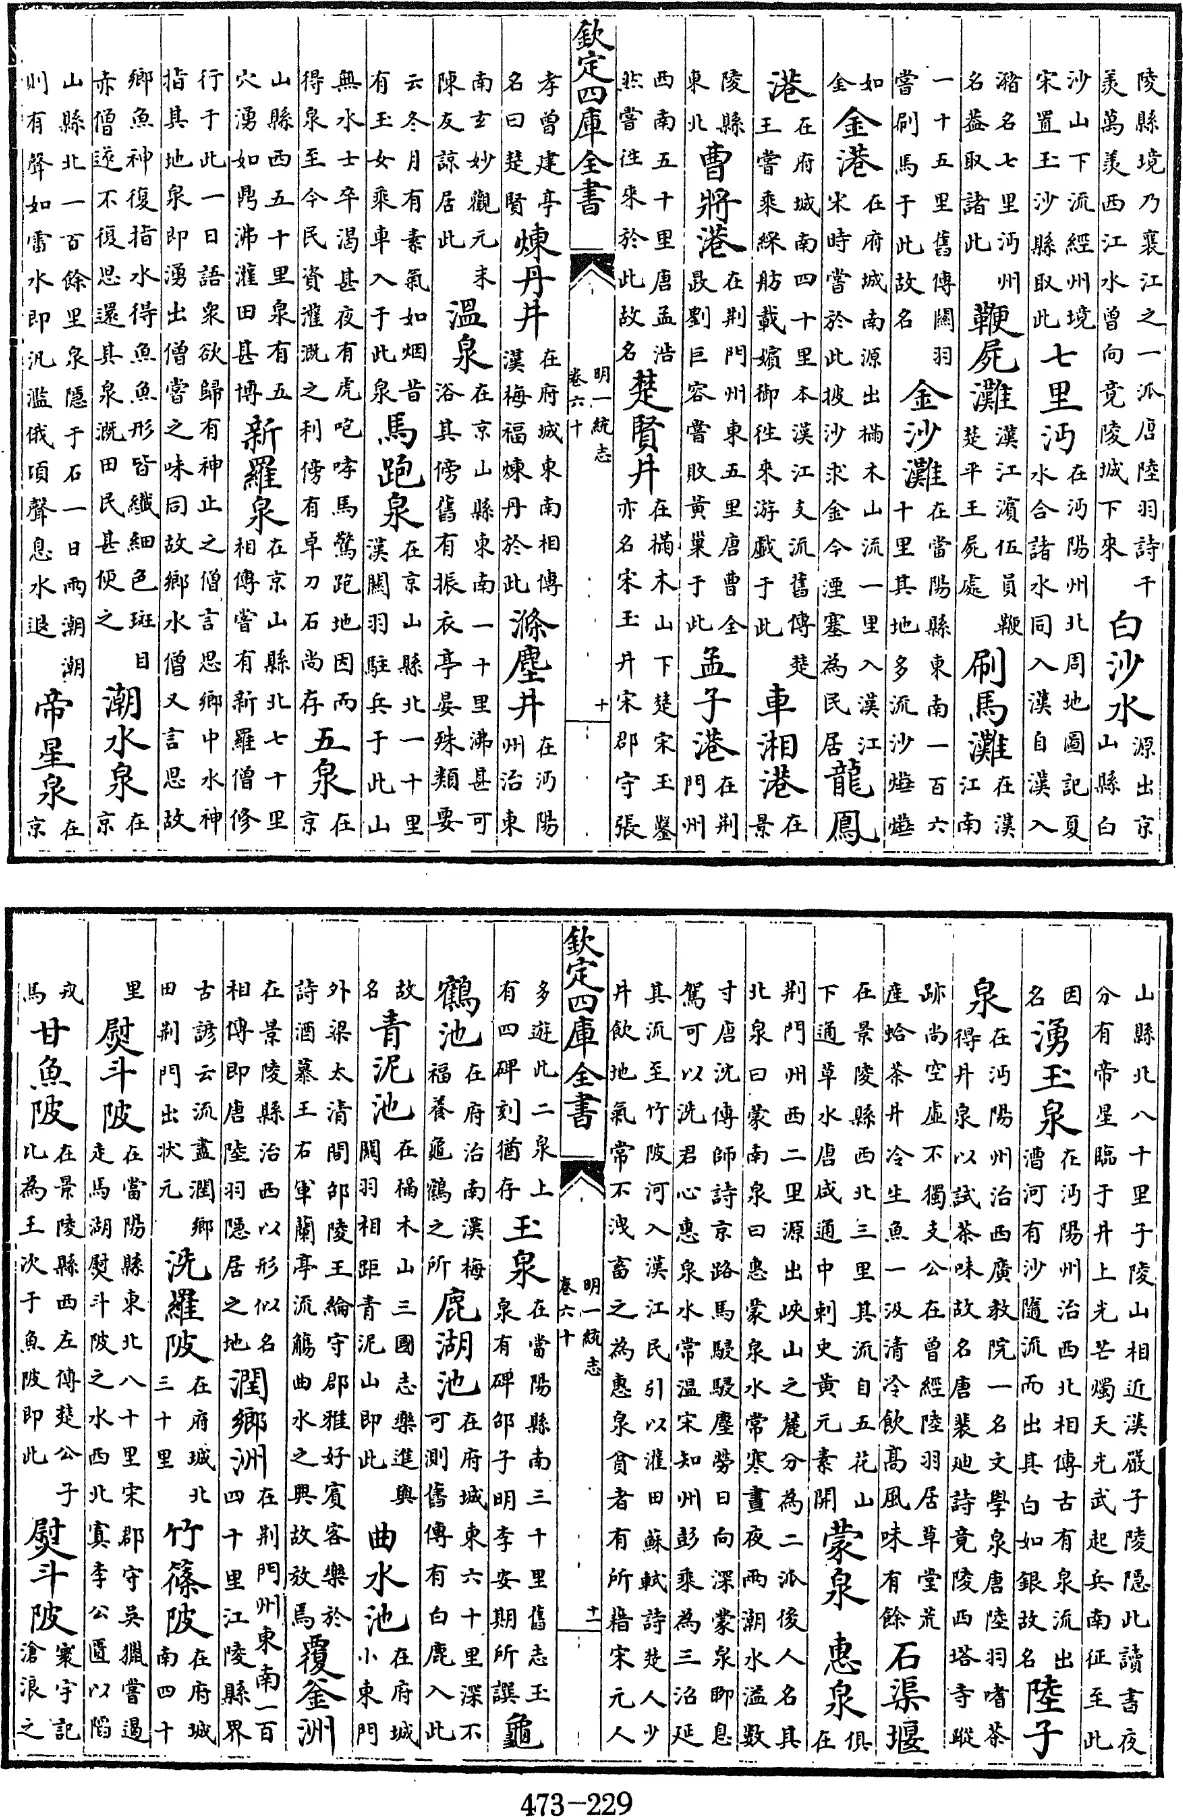 陵縣境乃襄江之一派唐陸羽詩千羨萬羨西江水曾向竟陵城下來白沙水源出京山縣白
沙山下流經州境宋置玉沙縣取此七里沔在沔陽州北周地圖記夏水合諸水同入漢自漢入
瀦名七里沔州名葢取諸此鞭屍灘漢江濱伍員鞭楚平王屍處刷馬灘在漢江南
一十五里舊傳關羽嘗刷馬于此故名金沙灘在當陽縣東南一百六十里其地多流沙
如金金港在府城南源出樠木山流一里入漢江宋時嘗於此披沙求金今湮塞為民居龍鳳
港在府城南四十里本漢江支流舊傳楚王嘗乘綵舫載嬪御徃來游戲于此車湘港在景
陵縣東北曹將港在荆門州東五里唐曹全晸劉巨容嘗敗黄巢于此孟子港在荆門州
西南五十里唐孟浩然嘗徃來於此故名楚賢井在樠木山下楚宋玉鑿亦名宋玉井宋郡守張
欽定四庫全書 明一統志 卷六十 十
孝曾建亭名曰楚賢煉丹井在府城東南相傳漢梅福煉丹於此滌塵井在沔陽州治東
南玄妙觀元末陳友諒居此溫泉在京山縣東南一十里沸甚可浴其傍舊有振衣亭晏殊類要
云冬月有素氣如烟昔有玉女乘車入于此泉馬跑泉在京山縣北一十里漢關羽駐兵于此山
無水士卒渴甚夜有虎咆哮馬驚跑地因而得泉至今民資灌溉之利傍有卓刀石尚存五泉在京
山縣西五十里泉有五穴湧如鼎沸灌田甚博新羅泉在京山縣北七十里相傳嘗有新羅僧修
行于此一日語衆欲歸有神止之僧言思鄉中水神指其地泉即湧出僧嘗之味同故鄉水僧又言思故
鄉魚神復指水得魚魚形皆纖細色斑目赤僧遂不復思還其泉溉田民甚便之潮水泉在京
山縣北一百餘里泉隱于石一日兩潮潮則有聲如雷水即汎濫俄頃聲息水退帝星泉在京
山縣北八十里子陵山相近漢嚴子陵隱此讀書夜分有帝星臨于井上光芒燭天光武起兵南征至此
因名湧玉泉在沔陽州治西北相傳古有泉流出漕河有沙隨流而出其白如銀故名陸子
泉在沔陽州治西廣教院一名文學泉唐陸羽嗜茶得井泉以試茶味故名唐裴迪詩竟陵西塔寺蹤
跡尚空虛不獨支公在曾經陸羽居草堂荒座蛤茶井冷生魚一汲清冷飲高風味有餘石渠堰
在景陵縣西北三里其流自五花山下通草水唐咸通中刺史黄元素開蒙泉惠泉俱在
荆門州西二里源出峽山之麓分為二派後人名其北泉曰蒙南泉曰惠蒙泉水常寒晝夜兩潮水溢數
寸唐沈傳師詩京路馬駸駸塵勞日向深蒙泉聊息駕可以洗君心惠泉水常温宋知州彭乘為三沼延
其流至竹陂河入漢江民引以灌田蘇軾詩楚人少井飲地氣常不洩畜之為惠泉貪者有所蓺宋元人
欽定四庫全書 明一統志 卷六十 十一
多遊此二泉上有四碑刻猶存玉泉在當陽縣南三十里舊志玉泉有碑邰子明李安期所譔龜
鶴池在府治南漢梅福養龜鶴之所鹿湖池在府城東六十里深不可測舊傳有白鹿入此
故名青泥池在樠木山三國志樂進與關羽相距青泥山即此曲水池在府城小東門
外梁太清間邵陵王綸守郡雅好賓客樂於詩酒慕王右軍蘭亭流觴曲水之興故效焉覆釜洲
在景陵縣治西以形似名相傳即唐陸羽隱居之地潤鄉洲在荆門州東南一百四十里江陵縣界
古諺云流盡潤鄉田荆門出狀元洗羅陂在府城北三十里竹篠陂在府城南四十
里熨斗陂在當陽縣東北八十里宋郡守吳獵嘗遏走馬湖熨斗陂之水西北寘李公匱以䧟
戎馬甘魚陂在景陵縣西左傳楚公子比為王次于魚陂即此熨斗陂寰宇記滄浪之
473-229